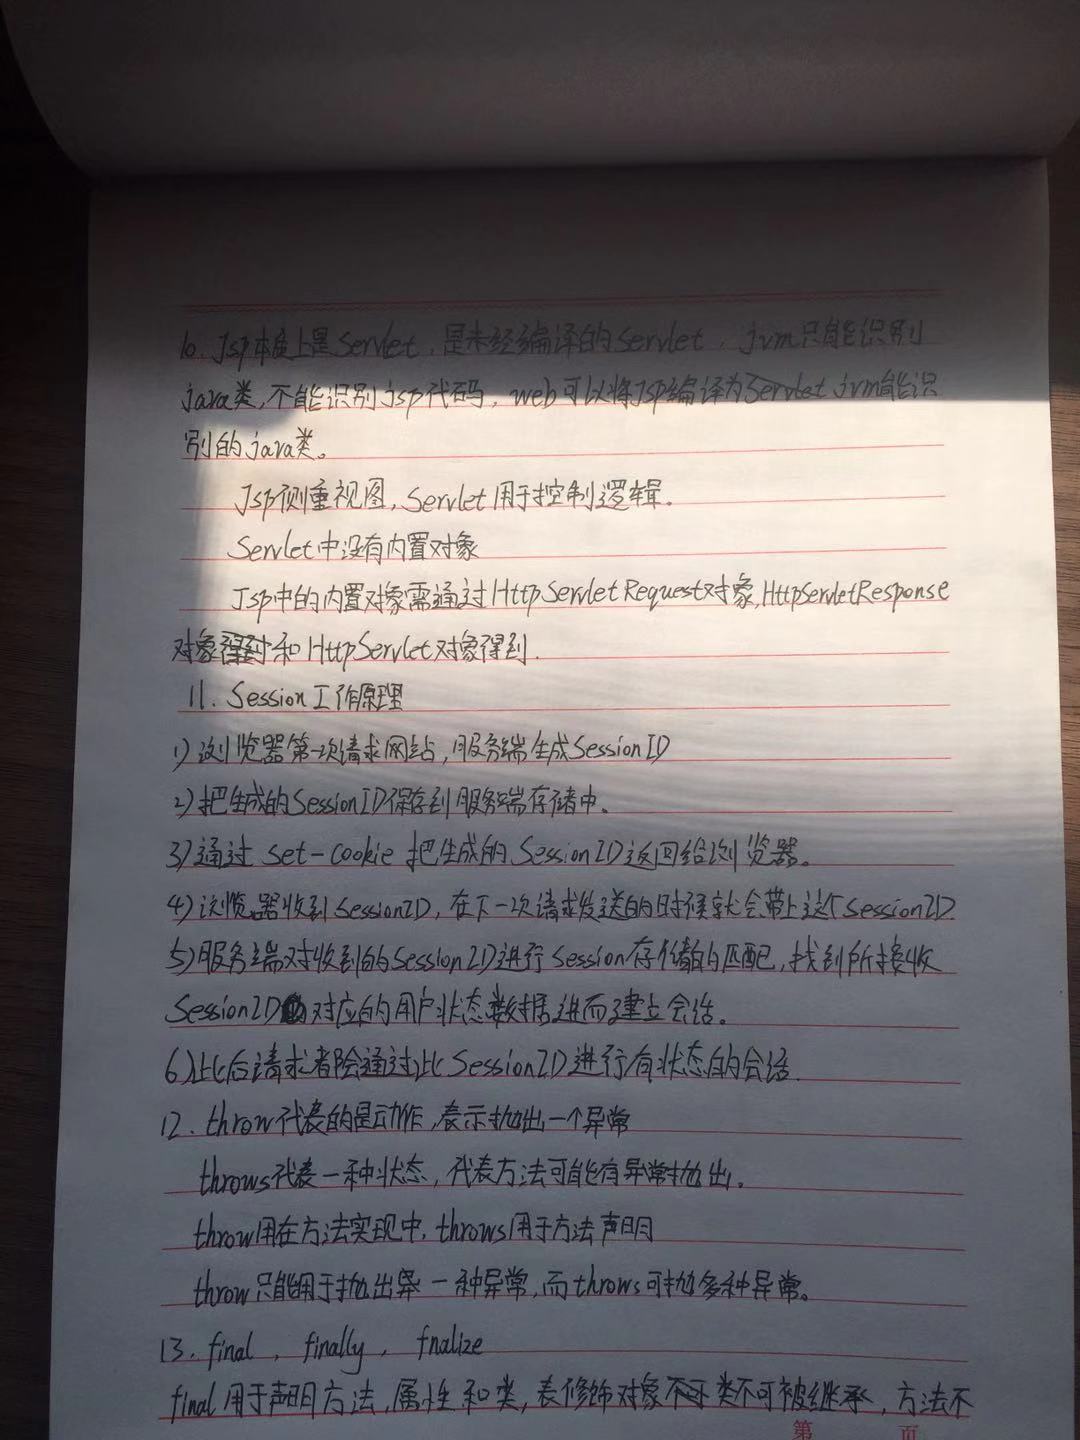 10. Jsp本质上是Servlet,是未经编译的Servlet,jvm只能识别
java类,不能识别jsp代码,web可以将Jsp编译为Servlet jvm能识
别的java类。
Jsp侧重视图,Servlet用于控制逻辑.
Servlet中没有内置对象
Jsp中的内置对象需通过HttpServletRequest对象,HttpServletResponse
对象得到和HttpServlet对象得到.
11. Session工作原理
1)浏览器第一次请求网站,服务端生成SessionID
2)把生成的SessionID保存到服务端存储中。
3)通过 set-cookie 把生成的SessionID返回给浏览器。
4)浏览器收到SessionID,在下一次请求发送的时候就会带上这个SessionID
5)服务端对收到的SessionID进行Session存储的匹配,找到所接收
SessionID对应的用户状态数据进而建立会话。
6)此后请求者会通过此SessionID进行有状态的会话.
12. throw代表的是动作,表示抛出一个异常
throws代表一种状态,代表方法可能有异常抛出.
throw用在方法实现中,throws用于方法声明
throw只能用于抛出一种异常,而throws可抛多种异常。
13. final , finally , fnalize
final用于声明方法,属性和类,表修饰对象类不可被继承,方法不
第 页